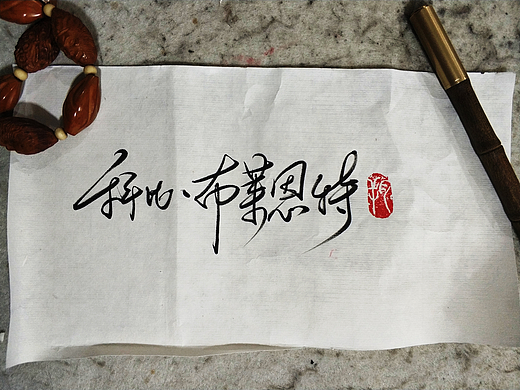 科比·布莱恩特